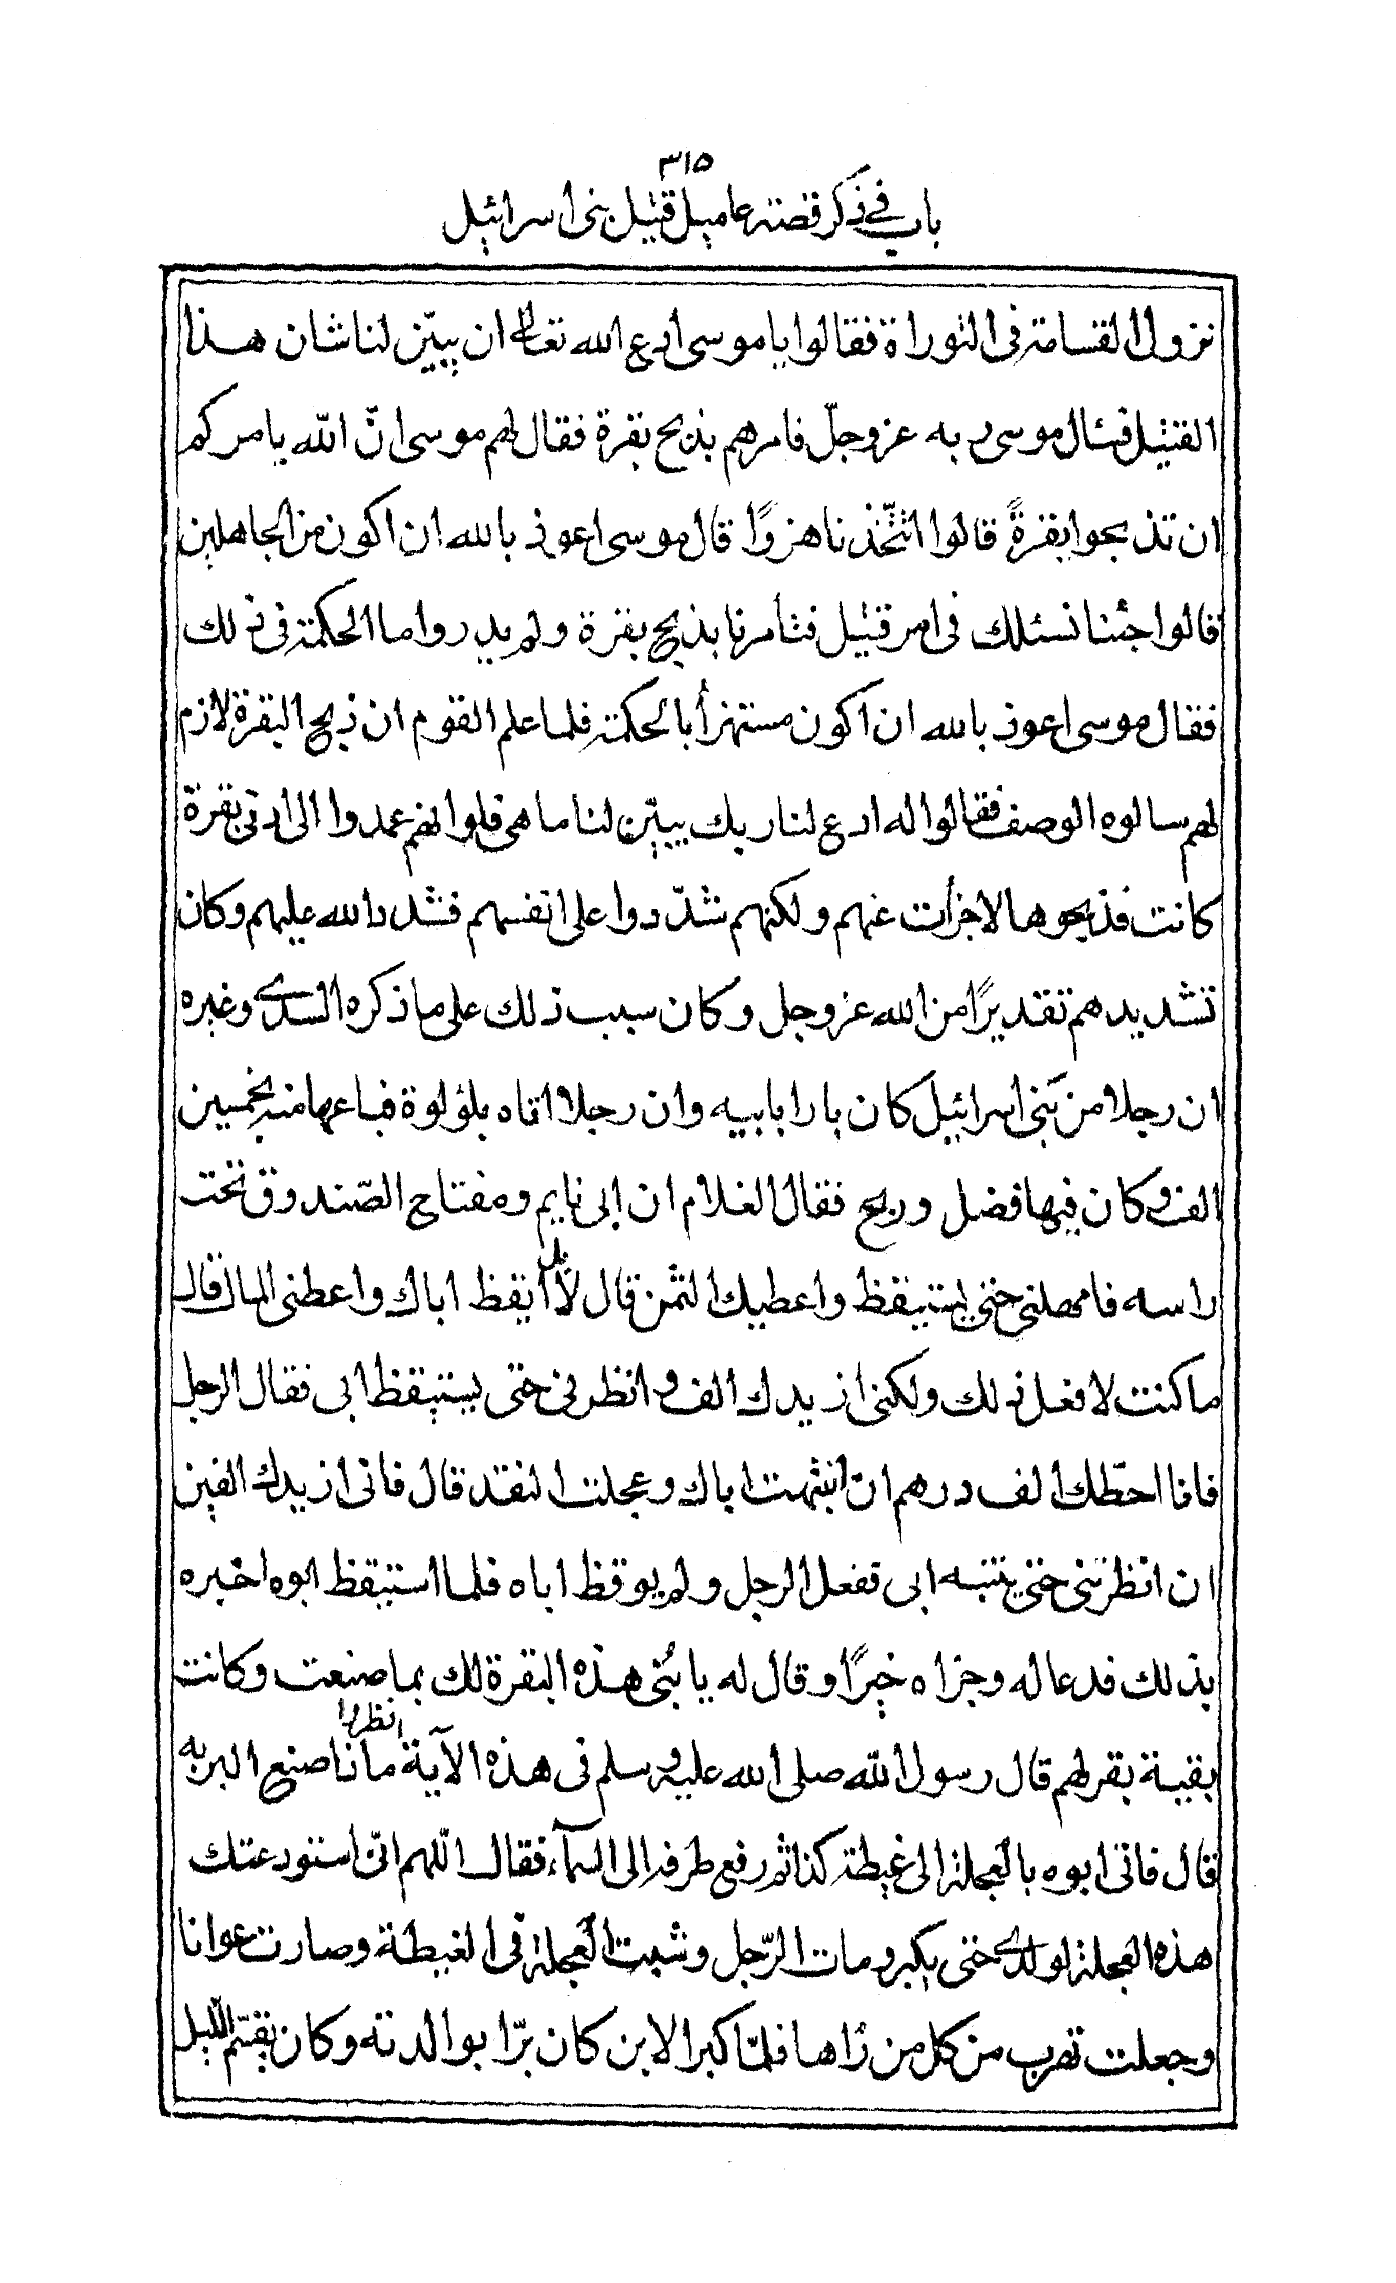 ٣١٥
باب في ذكر قصته عاميل قتيل بني اسرائيل
نزول القسامة في التوراة فقالوا يا موسى ادع الله تعالى ان يبيّن لنا شان هذا
القتيل فسئال موسى ربه عز وجلّ فامرهم بذبح بقرة فقال لهم موسى انّ الله يامركم
ان تذبحوا بقرةً قالوا اتتّخذنا هزوًا قال موسى اعوذ بالله ان اكون من الجاهلين
قالوا جئنا نسئلك في امر قتيل فتأمرنا بذبح بقرة ولم يدروا ما الحكمة في ذلك
فقال موسى اعوذ بالله ان اكون مستهزأ بالحكمة فلما علم القوم ان ذبح البقرة لازم
لهم سالوه الوصف فقالوا له ادع لنا ربك يبيّن لنا ما هي فلو انهم عمدوا الى ادنى بقرة
كانت فذبحوها لاجزأت عنهم ولكنهم شدّدوا على انفسهم فشدد الله عليهم وكان
تشديدهم تقديرًا من الله عز وجل وكان سبب ذلك على ما ذكره السدي وغيره
ان رجلا من بني اسرائيل كان بارا بابيه وان رجلا اتاه بلؤلوة فباعها منه بخمسين
الف وكان فيها فضل وربح فقال الغلام ان ابى نايم ومفتاح الصّندوق تحت
راسه فامهلني حتى يستيقظ واعطيك الثمن قال لا بل ايقظ اباك واعطني المال قال
ما كنت لافعل ذلك ولكني ازيدك الف وانظرني حتى يستيقظ ابى فقال الرجل
فانا احطّلك الف درهم ان انبهت اباك وعجلت النقد قال فانى ازيدك الفين
ان انظرتني حتى ينتبه ابى ففعل الرجل ولم يوقظ اباه فلما استيقظ ابوه اخبره
بذلك فدعا له وجزاه خيرًا وقال له يا بُني هذه البقرة لك بما صنعت وكانت
بقية بقر لهم قال رسول الله صلى الله عليه وسلم في هذه الآية انظروا ماذا صنع البر به
قال فاتى ابوه بالعجلة الى غيطة كذا ثم رفع طرفه الى السمآء فقال اللّهم انّى استودعتك
هذه العجلة لولدي حتى يكبر ومات الرّجل وشبت العجلة في الغيطة وصارت عوانا
وجعلت تهرب من كل من رأها فلمّا كبر الابن كان برّا بوالدته وكان يقسّم اللّيل